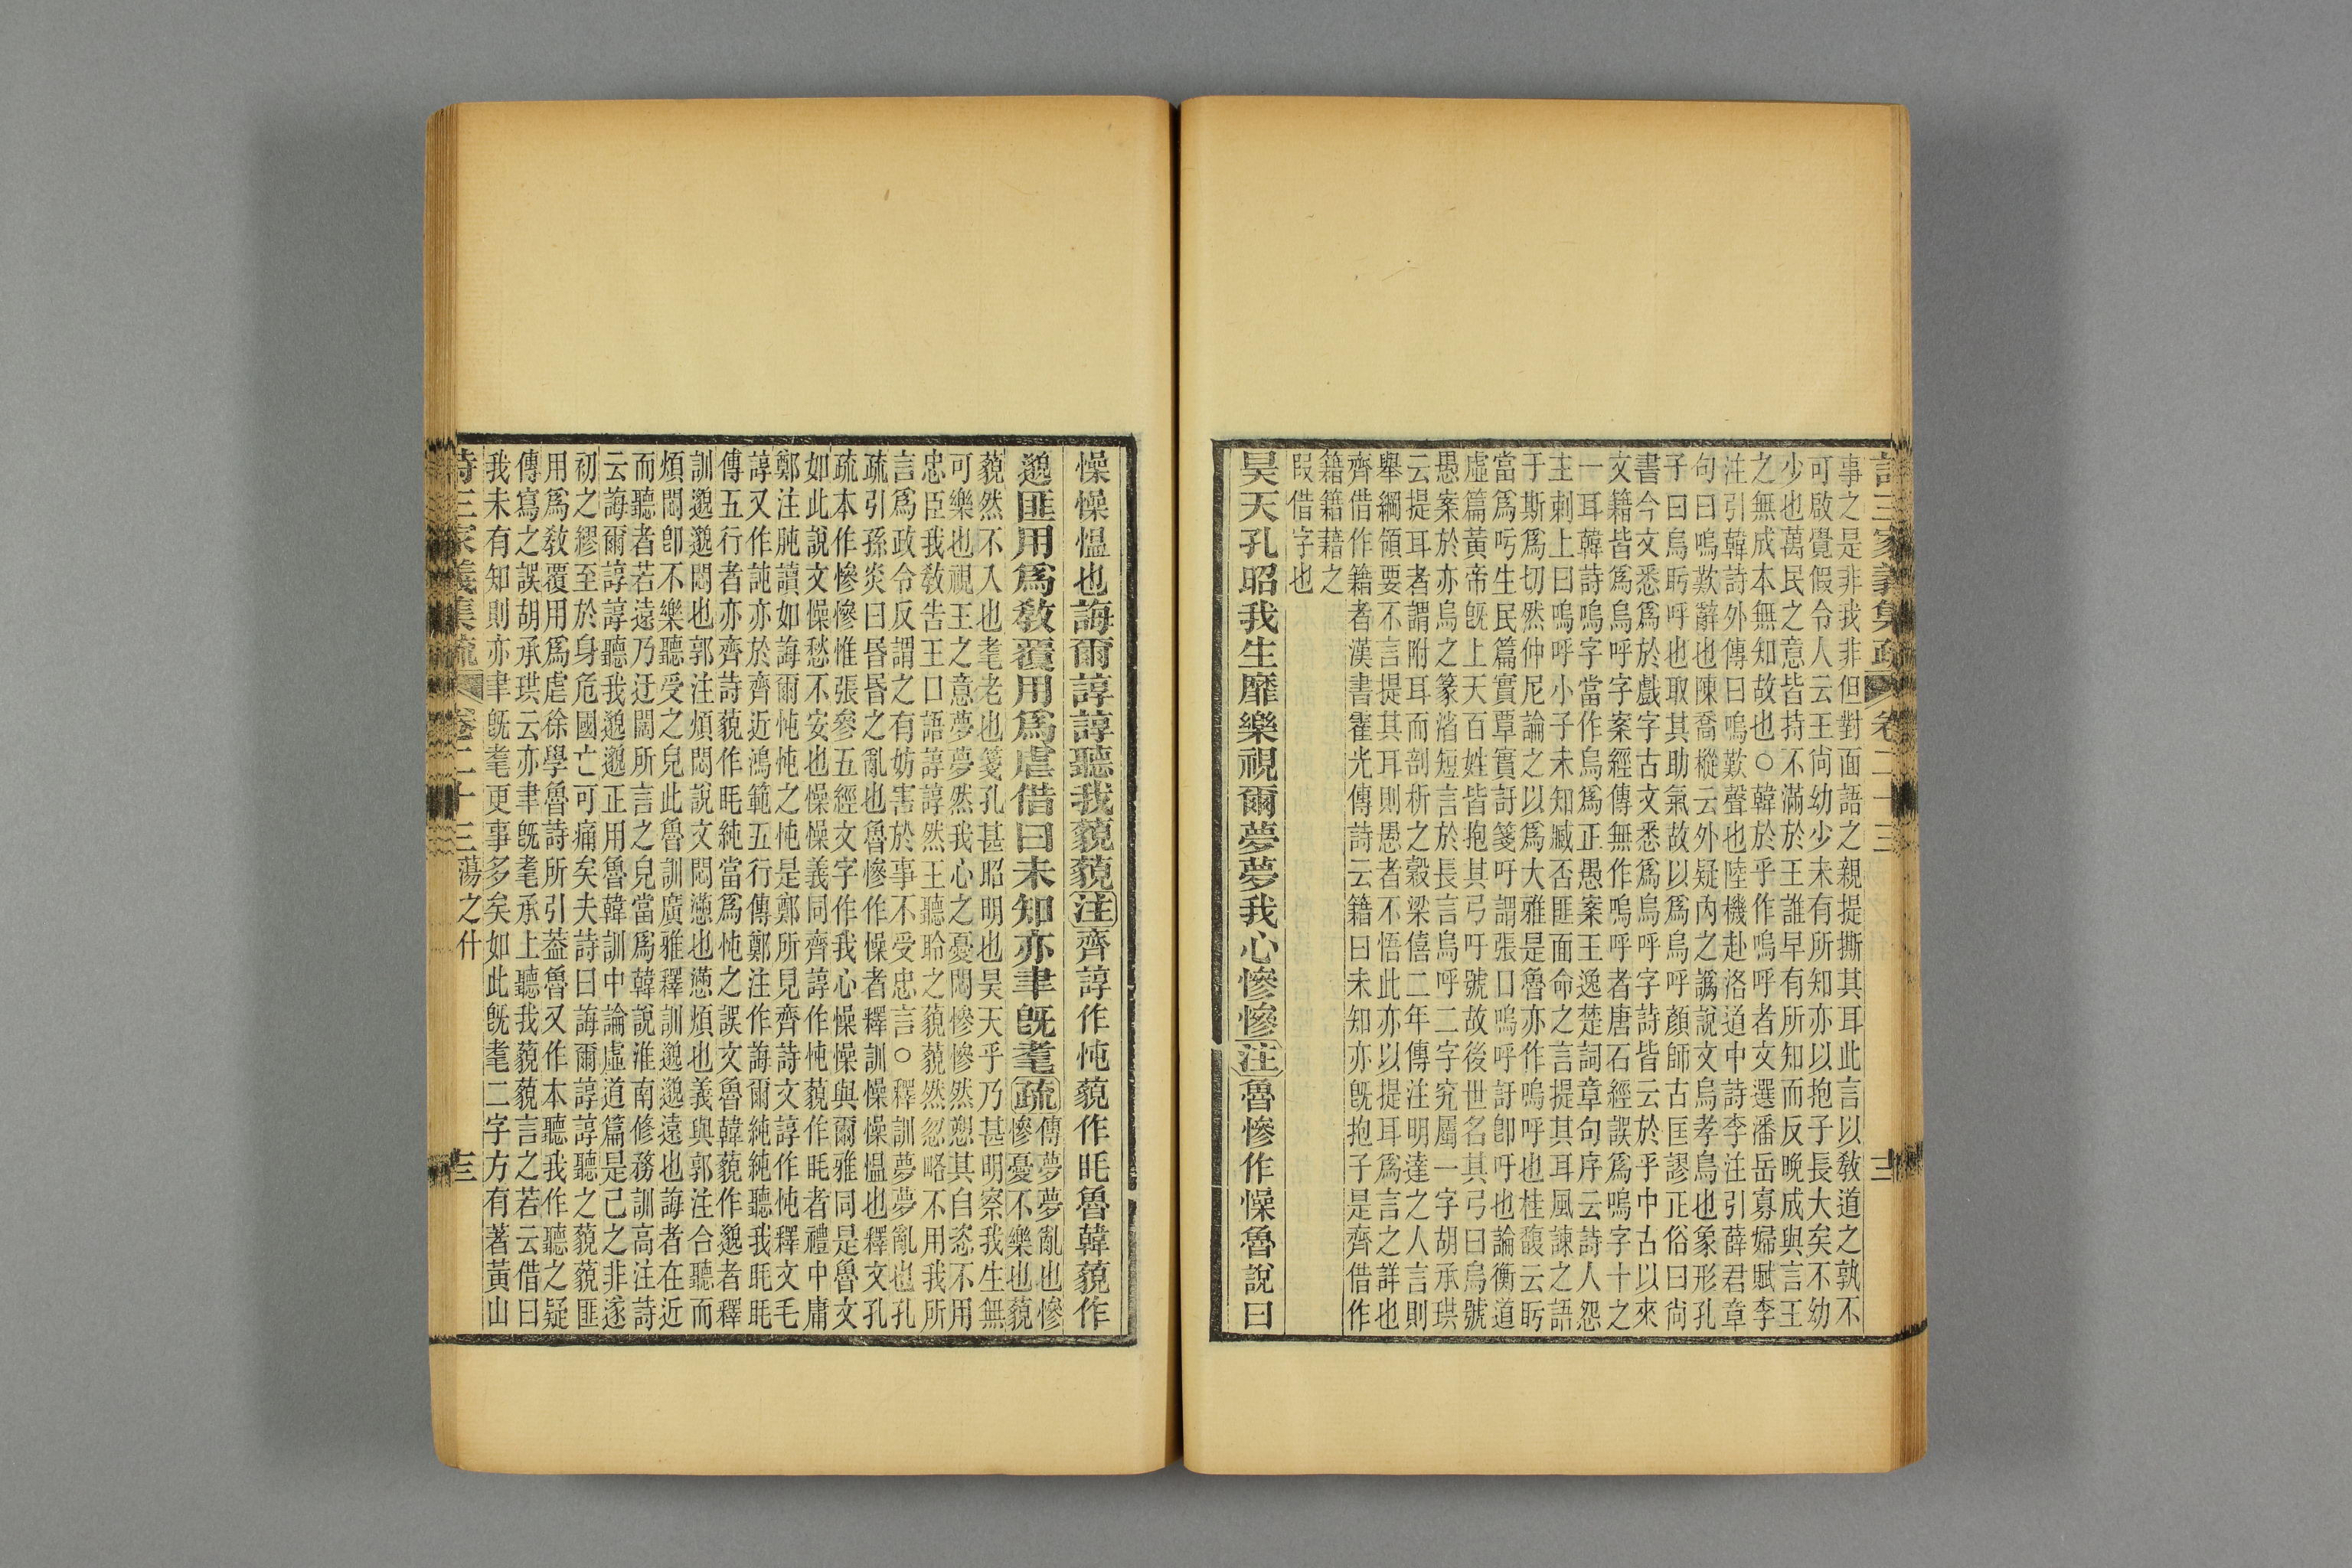 詩三家義集疏 卷二十三 十二
事之是非我非但對面語之親提撕其耳此言以教道之孰不
可啟覺假令人云王尙幼少未有所知亦以抱子長大矣不幼
少也萬民之意皆持不滿於王誰早有所知而反晚成與言王
之無成本無知故也○韓於乎作嗚呼者文選潘岳寡婦賦李
注引韓詩外傳曰嗚歎聲也陸機赴洛道中詩李注引薛君章
句曰嗚歎辭也陳喬樅云外疑內之譌說文烏孝鳥也象形孔
子曰烏盱呼也取其助氣故以爲烏呼顏師古匡謬正俗曰尙
書今文悉爲於戲字古文悉爲烏呼字詩皆云於乎中古以來
文籍皆爲烏呼字案經傳無作嗚呼者唐石經誤爲嗚字十之
一耳韓詩嗚字當作烏爲正愚案王逸楚詞章句序云詩人怨
主刺上曰嗚呼小子未知臧否匪面命之言提其耳風諫之語
于斯爲切然仲尼論之以爲大雅是魯亦作嗚呼也桂馥云盱
當爲吁生民篇實覃實訏箋吁謂張口嗚呼訏卽吁也論衡道
虛篇黃帝旣上天百姓皆抱其弓吁號故後世名其弓曰烏號
愚案於亦烏之篆湝短言於長言烏呼二字究屬一字胡承珙
云提耳者謂附耳而剖析之榖梁僖二年傳注明達之人言則
舉綱領要不言提其耳則愚者不悟此亦以提耳爲言之詳也
齊借作籍者漢書霍光傳詩云籍曰未知亦旣抱子是齊借作
籍籍藉之
叚借字也
昊天孔昭我生靡樂視爾夢夢我心慘慘注魯慘作懆魯說曰
懆懆慍也誨爾諄諄聽我藐藐注齊諄作忳藐作眊魯韓藐作
邈匪用爲敎覆用爲虐借曰未知亦聿旣耄疏傳夢夢亂也慘
慘憂不樂也藐
藐然不入也耄老也箋孔甚昭明也昊天乎乃甚明察我生無
可樂也視王之意夢夢然我心之憂悶慘慘然愬其自恣不用
忠臣我敎告王口語諄諄然王聽聆之藐藐然忽略不用我所
言爲政令反謂之有妨害於事不受忠言○釋訓夢夢亂也孔
疏引孫炎曰昏昏之亂也魯慘作懆者釋訓懆懆慍也釋文孔
疏本作慘慘惟張參五經文字作我心懆懆與爾雅同是魯文
如此說文懆愁不安也懆懆義同齊諄作忳藐作眊者禮中庸
鄭注肫讀如誨爾忳忳之忳是鄭所見齊詩文諄作忳釋文毛
諄又作訰亦於齊近鴻範五行傳鄭注作誨爾純純聽我眊眊
傳五行者亦齊詩藐作眊純當爲忳之誤文魯韓藐作邈者釋
訓邈邈悶也郭注煩悶說文悶懣也懣煩也義與郭注合聽而
煩悶卽不樂聽受之皃此魯訓廣雅釋訓邈邈遠也誨者在近
而聽者若遠乃迂闊所言之皃當爲韓說淮南修務訓高注詩
云誨爾諄諄聽我邈邈正用魯韓訓中論虛道篇是己之非遂
初之繆至於身危國亡可痛矣夫詩曰誨爾諄諄聽之藐藐匪
用爲敎覆用爲虐徐學魯詩所引葢魯又作本聽我作聽之疑
傳寫之誤胡承珙云亦聿旣耄承上聽我藐藐言之若云借曰
我未有知則亦聿旣耄更事多矣如此旣耄二字方有著黃山
詩三家義集疏 卷二十三 蕩之什 十三